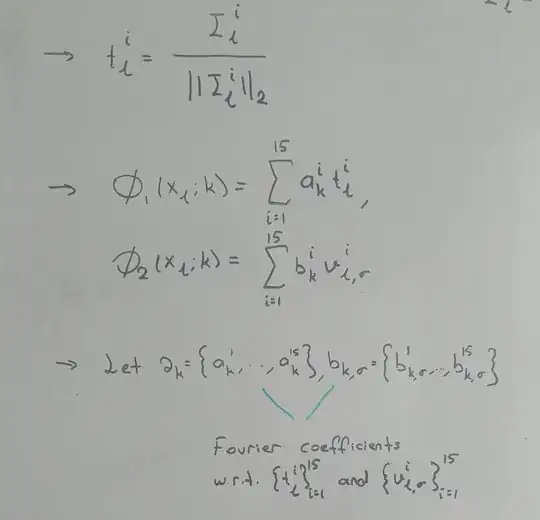 → t_l^i = I_l^i / ||I_l^i||_2
→ Φ_1(x_l;k) = Σ_{i=1}^{15} a_k^i t_l^i,
Φ_2(x_l;k) = Σ_{i=1}^{15} b_k^i v_{l,σ}^i
→ Let a_k = {a_k^1, ..., a_k^{15}}, b_{k,σ} = {b_{k,σ}^1, ..., b_{k,σ}^{15}}
Fourier coefficients
w.r.t. {t_l^i}_{i=1}^{15} and {v_{l,σ}^i}_{i=1}^{15}